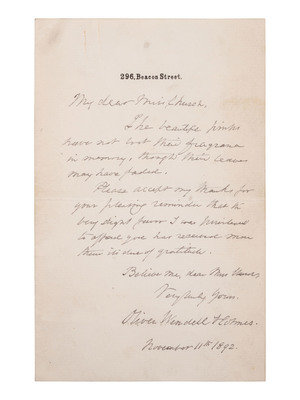 296, Beacon Street.
My dear Miss Church,
The beautiful pinks
have not lost their fragrance
in memory, though their leaves
may have faded.
Please accept my thanks for
your pleasing reminder that the
very slight favor I was
to afford you has received more
than its due of gratitude.
Believe me, dear Miss
Very truly yours,
Oliver Wendell Holmes.
November 11th 1892.